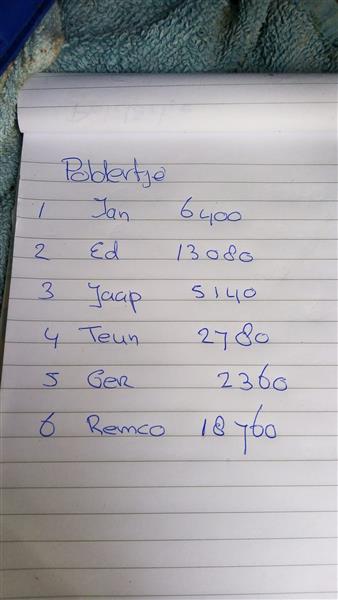 Poldertje
1 Jan 6400
2 Ed 13080
3 Jaap 5140
4 Teun 2780
5 Ger 2360
6 Remco 18760